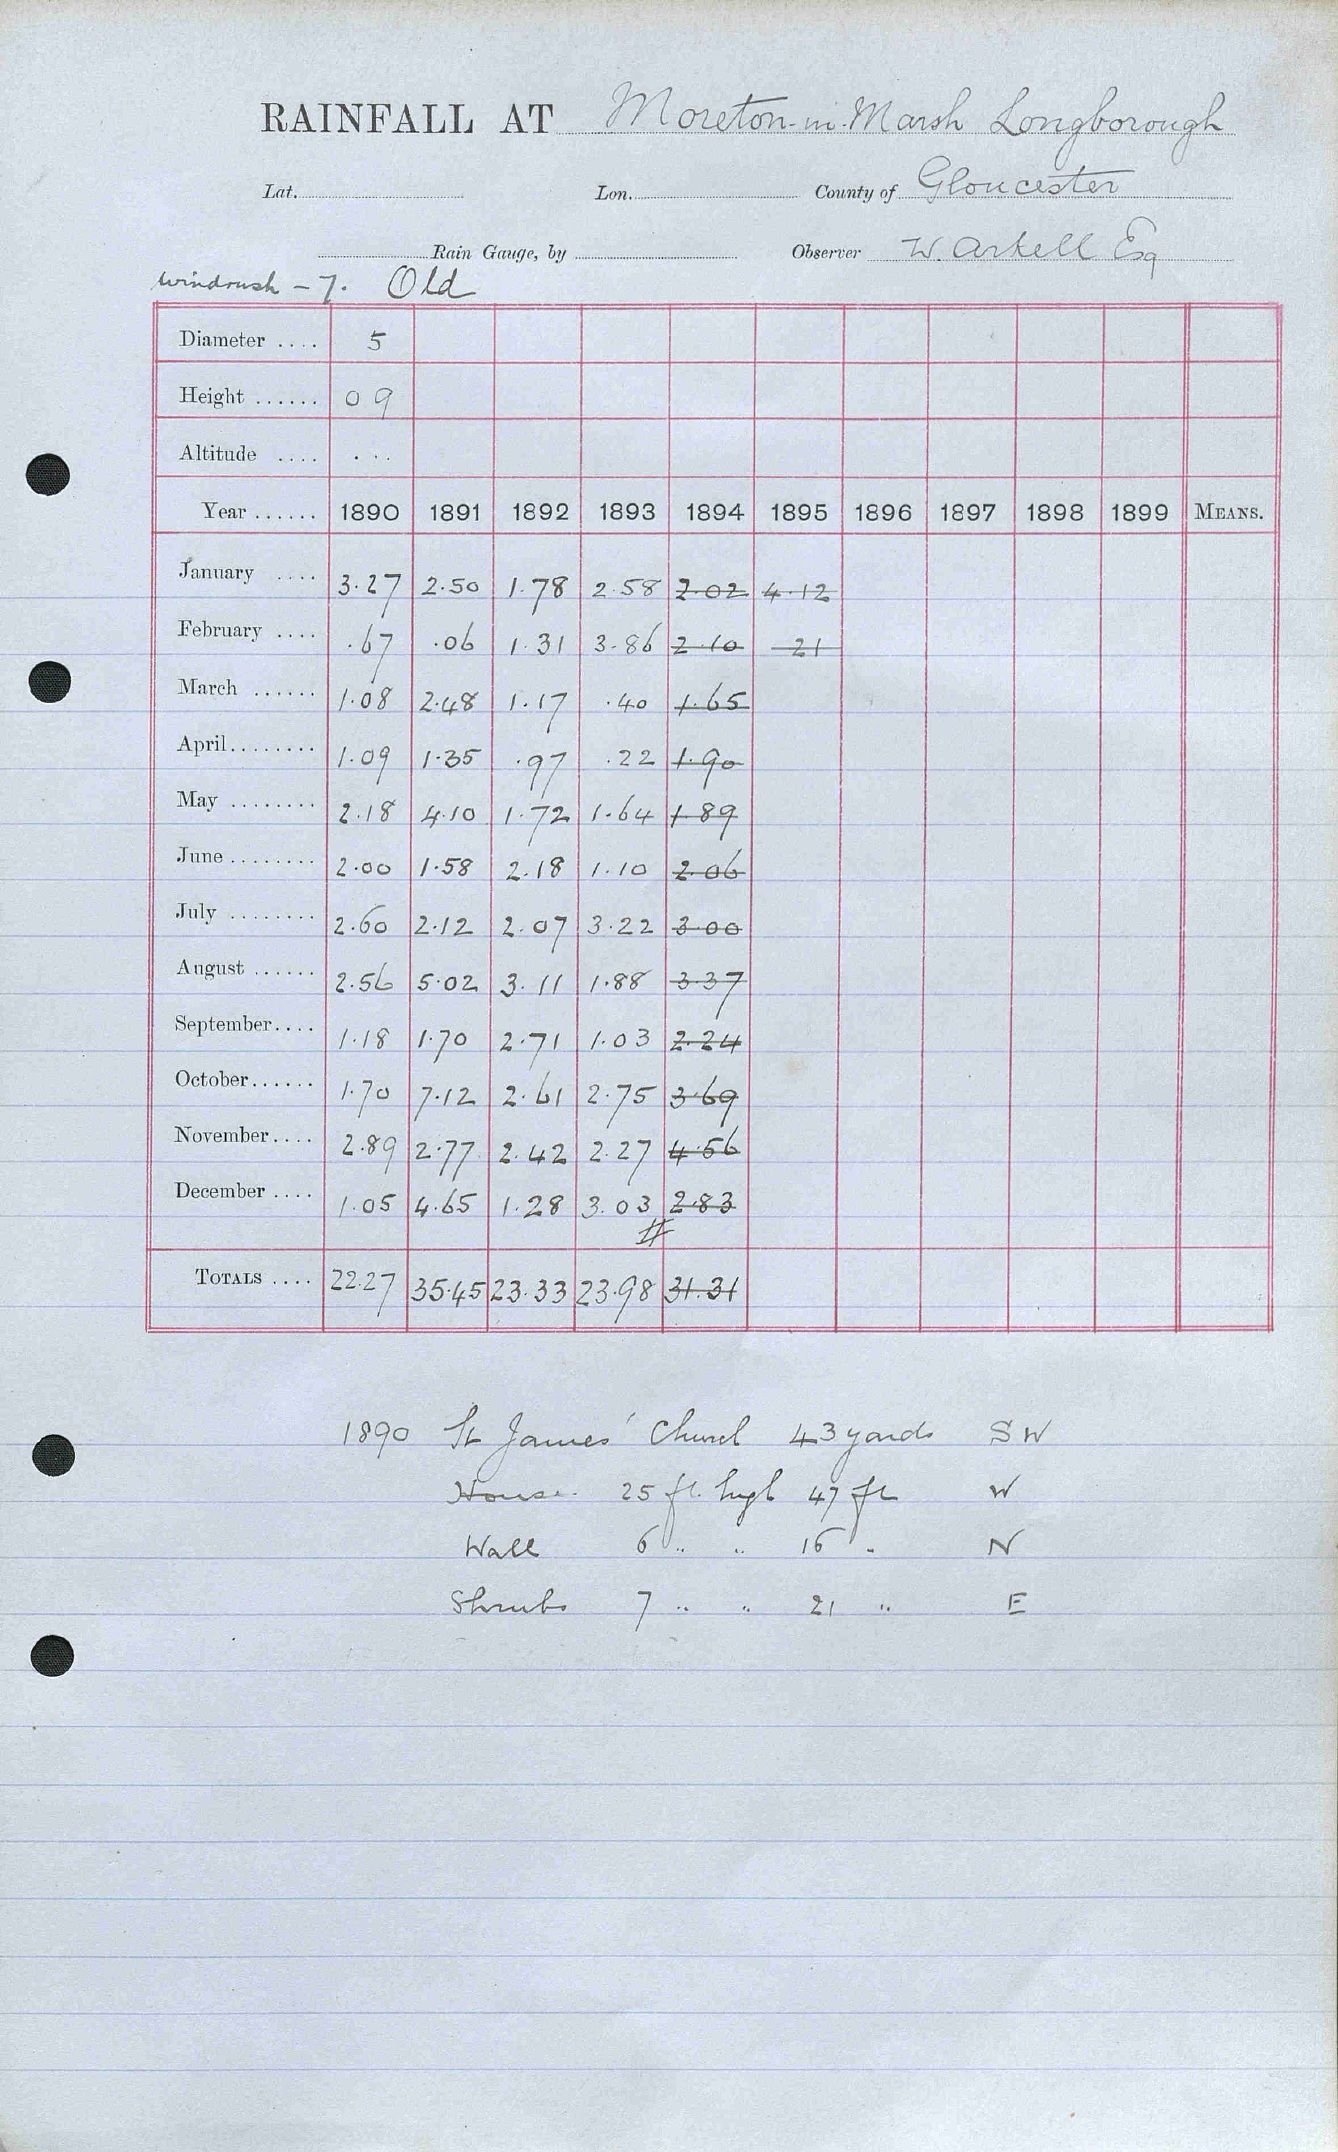 RAINFALL AT Moreton-in-Marsh Longborough
Lat. Lon. County of Gloucester
Rain Gauge, by Observer W. Arkell Esq
Windrush – 7. Old
Diameter .... 5
Height ...... 0 9
Altitude .... ...
Year ...... 1890 1891 1892 1893 1894 1895 1896 1897 1898 1899 MEANS.
January .... 3.27 2.50 1.78 2.58 2.02 4.12
February .... .67 .06 1.31 3.86 2.10 21
March ...... 1.08 2.48 1.17 .40 1.65
April........ 1.09 1.35 .97 .22 1.90
May ........ 2.18 4.10 1.72 1.64 1.89
June ........ 2.00 1.58 2.18 1.10 2.06
July ........ 2.60 2.12 2.07 3.22 3.00
August ...... 2.56 5.02 3.11 1.88 3.37
September.... 1.18 1.70 2.71 1.03 2.24
October...... 1.70 7.12 2.61 2.75 3.69
November.... 2.89 2.77 2.42 2.27 4.56
December .... 1.05 4.65 1.28 3.03 2.83
#
TOTALS .... 22.27 35.45 23.33 23.98 31.31
1890 St James' Church 43 yards S W
House 25 ft. high 47 ft W
Wall 6 " " 16 " N
Shrubs 7 " " 21 " E